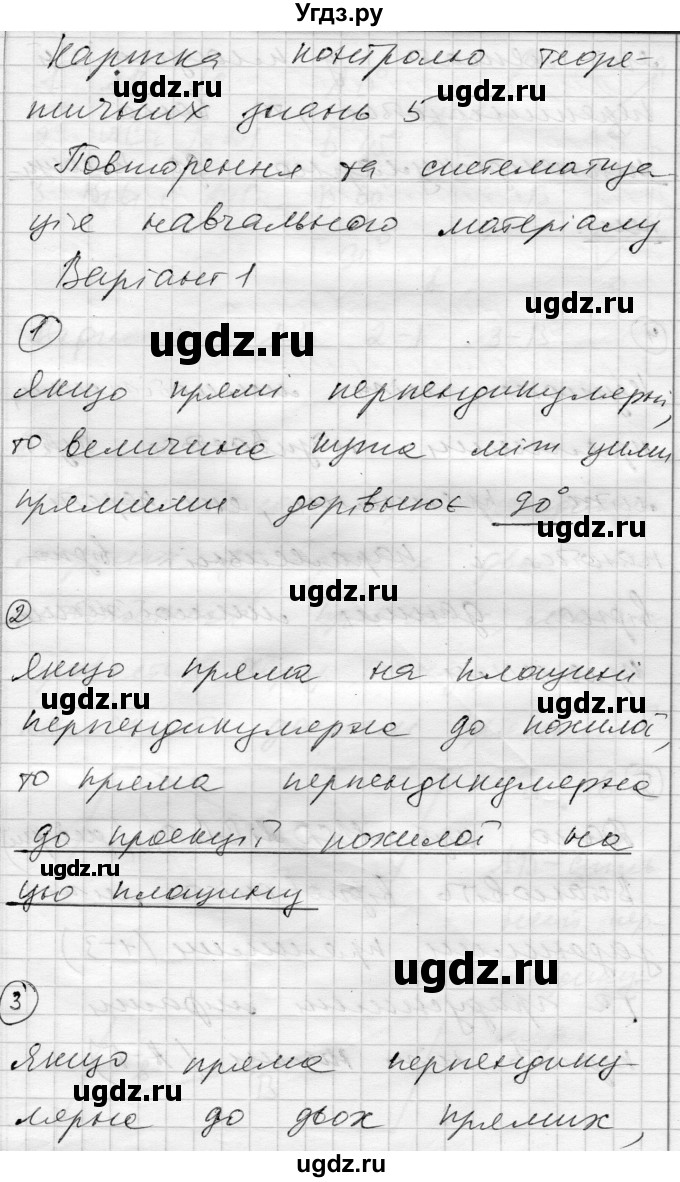 Угдз.ру
Картка контролю теоре-
тичних знань 5
ugdz.ru ugdz.ru
Повторення та систематиза-
ція навчального матеріалу
Варіант 1
ugdz.ru
1
ugdz.ru
Якщо прямі перпендикулярні,
то величина кута між цими
прямими дорівнює 90°
ugdz.ru
2
Якщо пряма на площині
ugdz.ru ugdz.ru
перпендикулярна до похилої,
то пряма перпендикулярна
до проекції похилої на
ugdz.ru
цю площину
ugdz.ru
3
Якщо пряма перпендику-
ugdz.ru
лярна до двох прямих,
ugdz.ru